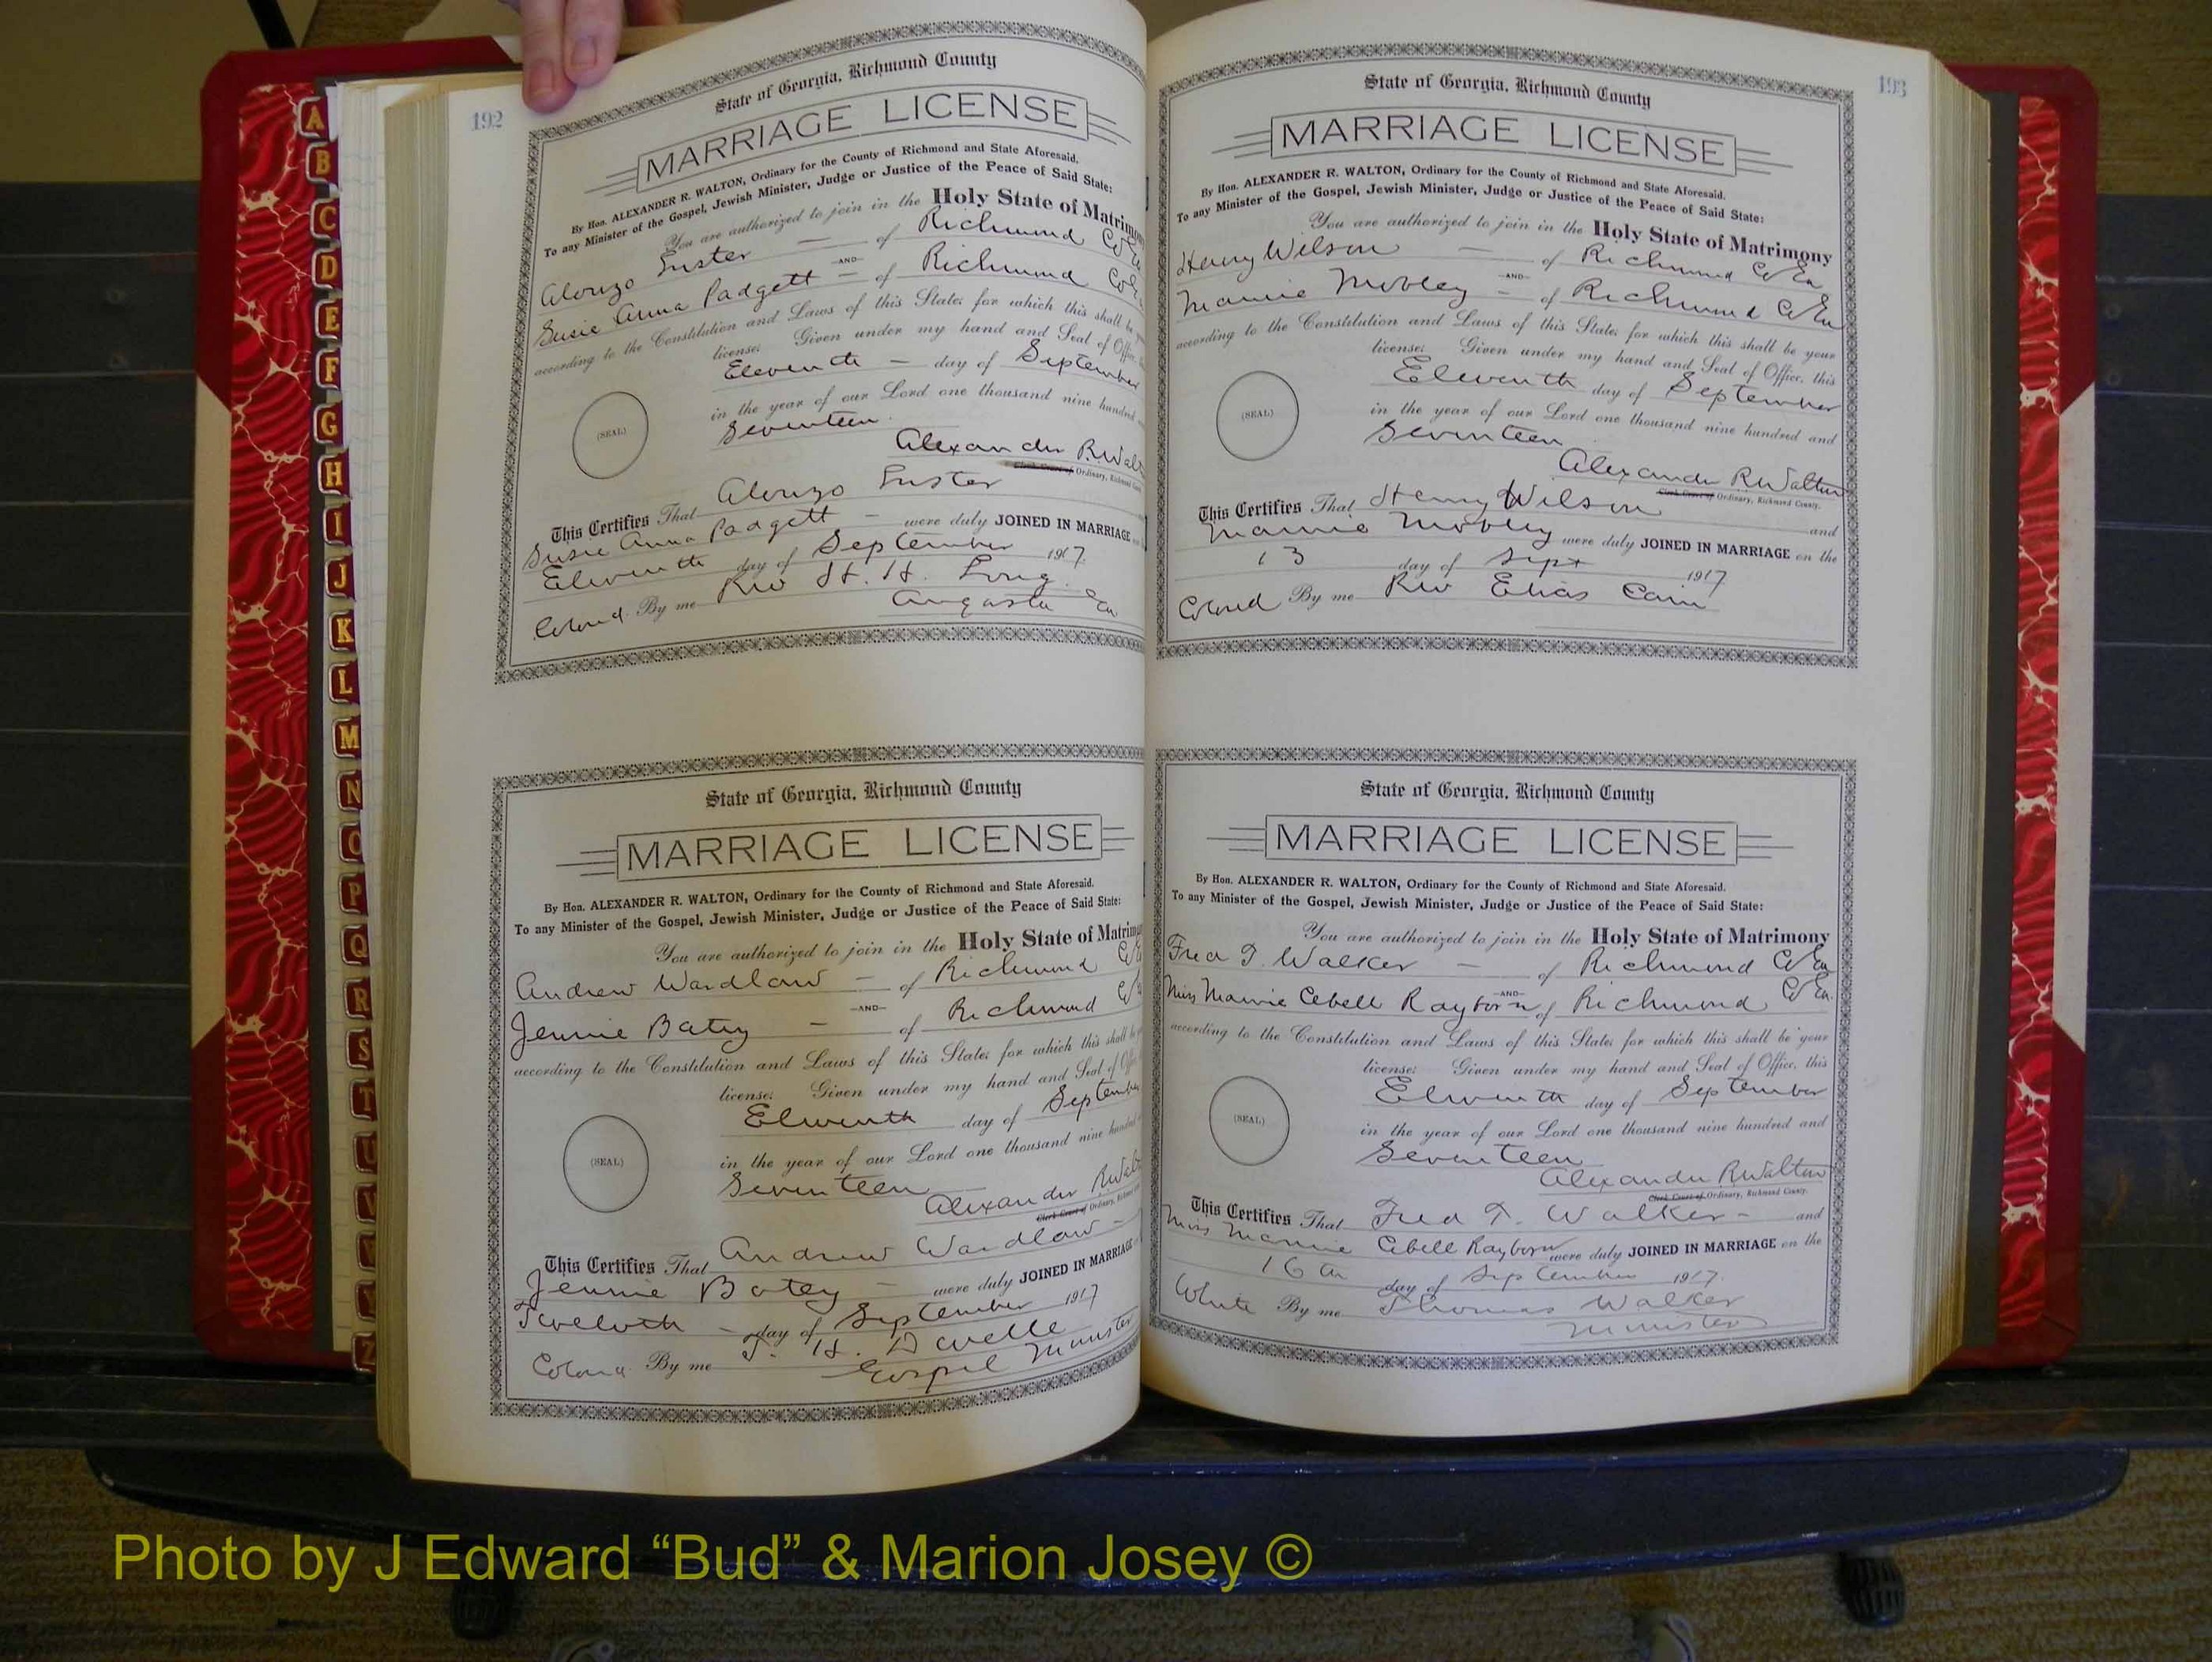 192
State of Georgia, Richmond County
MARRIAGE LICENSE
By Hon. ALEXANDER R. WALTON, Ordinary for the County of Richmond and State Aforesaid.
To any Minister of the Gospel, Jewish Minister, Judge or Justice of the Peace of Said State:
You are authorized to join in the Holy State of Matrimony
Alonzo — of Richmond Co
AND
Susie Anna Padgett — of Richmond Co
according to the Constitution and Laws of this State; for which this shall be
license; Given under my hand and Seal of Office,
Eleventh — day of September
in the year of our Lord one thousand nine hundred
Seventeen.
(SEAL)
Alexander R. Walt
Clerk Court of Ordinary, Richmond
This Certifies That Alonzo
Susie Anna Padgett — were duly JOINED IN MARRIAGE
Eleventh day of September 1917
Colored. By me Rev H. H. Long
Augusta Ga
State of Georgia, Richmond County
MARRIAGE LICENSE
By Hon. ALEXANDER R. WALTON, Ordinary for the County of Richmond and State Aforesaid.
To any Minister of the Gospel, Jewish Minister, Judge or Justice of the Peace of Said State:
You are authorized to join in the Holy State of Matrimony
Andrew Wardlaw — of Richmond
AND
Jennie Batey — of Richmond
according to the Constitution and Laws of this State; for which this shall be
license; Given under my hand and Seal of
Eleventh day of September
in the year of our Lord one thousand nine hundred
Seventeen
(SEAL)
Alexander R Walt
Clerk Court of Ordinary,
This Certifies That Andrew Wardlaw —
Jennie Batey — were duly JOINED IN MARRIAGE
Twelveth — day of September 1917
Colored By me J. H.
Gospel Minister
193
State of Georgia, Richmond County
MARRIAGE LICENSE
By Hon. ALEXANDER R. WALTON, Ordinary for the County of Richmond and State Aforesaid.
To any Minister of the Gospel, Jewish Minister, Judge or Justice of the Peace of Said State:
You are authorized to join in the Holy State of Matrimony
Henry Wilson — of Richmond Co Ga
AND
Mamie Mobley — of Richmond Co Ga
according to the Constitution and Laws of this State; for which this shall be your
license; Given under my hand and Seal of Office, this
Eleventh day of September
in the year of our Lord one thousand nine hundred and
Seventeen
(SEAL)
Alexander R Walton
Clerk Court of Ordinary, Richmond County.
This Certifies That Henry Wilson and
Mamie Mobley were duly JOINED IN MARRIAGE on the
13 day of Sept 1917
Colored By me Rev Elias Cain
State of Georgia, Richmond County
MARRIAGE LICENSE
By Hon. ALEXANDER R. WALTON, Ordinary for the County of Richmond and State Aforesaid.
To any Minister of the Gospel, Jewish Minister, Judge or Justice of the Peace of Said State:
You are authorized to join in the Holy State of Matrimony
Fred T. Walker — of Richmond Co Ga
AND
Miss Mamie Cebell Rayborn of Richmond Co Ga.
according to the Constitution and Laws of this State; for which this shall be your
license; Given under my hand and Seal of Office, this
Eleventh day of September
in the year of our Lord one thousand nine hundred and
Seventeen
(SEAL)
Alexander R Walton
Clerk Court of Ordinary, Richmond County.
This Certifies That Fred T. Walker — and
Miss Mamie Cebell Rayborn were duly JOINED IN MARRIAGE on the
16 day of September 1917.
White By me Thomas Walker
Minister
A
B
C
D
E
F
G
H
I
J
K
L
M
N
O
P
Q
R
S
T
U
V
Z
Photo by J Edward “Bud” & Marion Josey ©